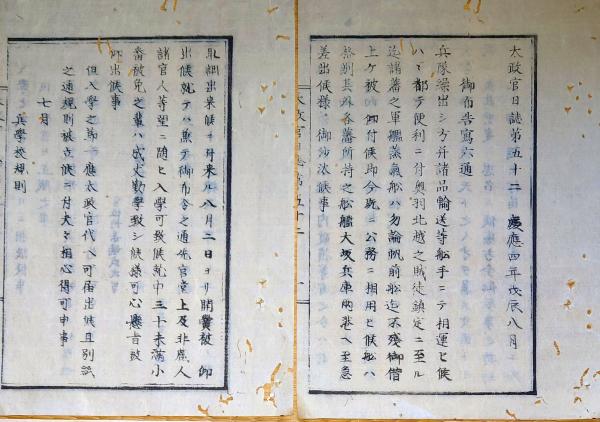 太政官日誌第五十二 慶應四年戊辰八月
御布告寫六通
兵隊繰出シ方并諸品輸送等船手ニテ相運ヒ候
ハヽ都テ便利ニ付奥羽北越之賊徒鎮定ニ至ル
迄諸藩之軍艦蒸氣船ハ勿論帆前船迄不残御借
上ケ被 仰付候即今既ニ公務ニ相用ヒ候船ハ
格別其外各藩所持之船艦大坂兵庫兩港ヘ至急
差出候様 御沙汰候事
規則出来候ニ付来ル八月二日ヨリ開黌被 仰
出候就テハ兼テ御布令之通先官堂上及非蔵人
諸官人等望ニ随ヒ入學可致候就中三十未滿小
番被免之輩ハ成丈勤學致シ候様可心懸旨被
仰出候事
但入學之節ハ應太政官代ヘ可届出候且別紙
之通規則被立候ニ付夫々相心得可申事
七月
兵學校規則